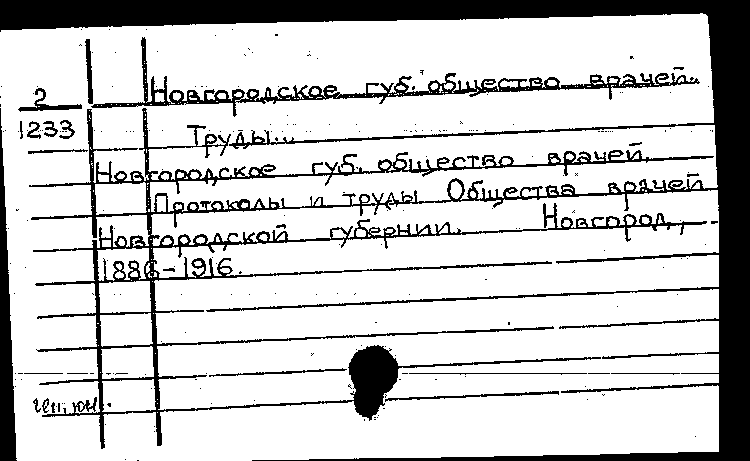 2
1233
Новгородское губ. общество врачей..
Труды...
Новгородское губ. общество врачей.
Протоколы и труды Общества врачей
Новгородской губернии. Новгород,
1886-1916.